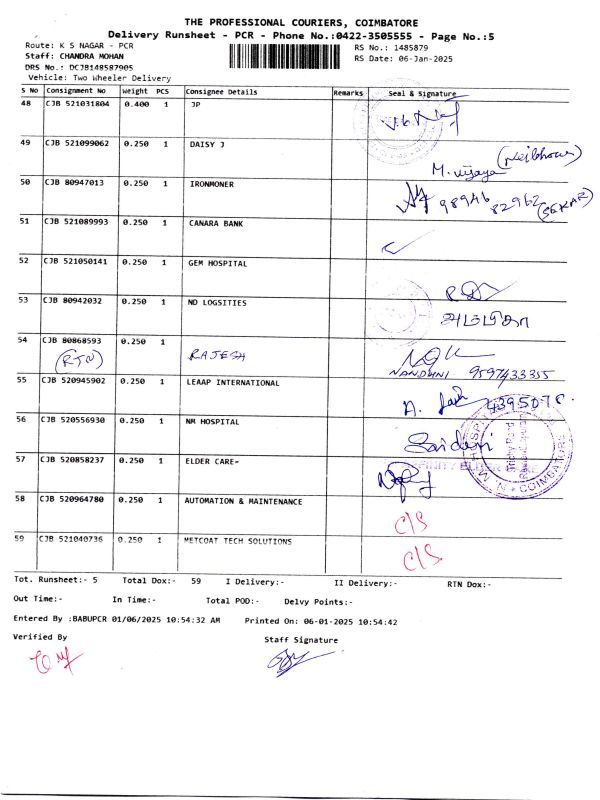 THE PROFESSIONAL COURIERS, COIMBATORE
Delivery Runsheet - PCR - Phone No.:0422-3505555 - Page No.:5
Route: K S NAGAR - PCR RS No.: 1485879
Staff: CHANDRA MOHAN RS Date: 06-Jan-2025
DRS No.: DCJB148587905
Vehicle: Two Wheeler Delivery
S No Consignment No Weight PCS Consignee Details Remarks Seal & Signature
48 CJB 521031804 0.400 1 JP
49 CJB 521099062 0.250 1 DAISY J
M. vijaya
50 CJB 80947013 0.250 1 IRONMONER
98946 82962 (SEKAR)
51 CJB 521089993 0.250 1 CANARA BANK
52 CJB 521050141 0.250 1 GEM HOSPITAL
53 CJB 80942032 0.250 1 ND LOGSITIES
54 CJB 80868593 0.250 1
(RTN) RAJESH
NANDHNI 9597433355
55 CJB 520945902 0.250 1 LEAAP INTERNATIONAL
56 CJB 520556930 0.250 1 NM HOSPITAL
57 CJB 520858237 0.250 1 ELDER CARE-
58 CJB 520964780 0.250 1 AUTOMATION & MAINTENANCE
C/S
59 CJB 521040736 0.250 1 METCOAT TECH SOLUTIONS
C/S
Tot. Runsheet:- 5 Total Dox:- 59 I Delivery:- II Delivery:- RTN Dox:-
Out Time:- In Time:- Total POD:- Delvy Points:-
Entered By :BABUPCR 01/06/2025 10:54:32 AM Printed On: 06-01-2025 10:54:42
Verified By Staff Signature